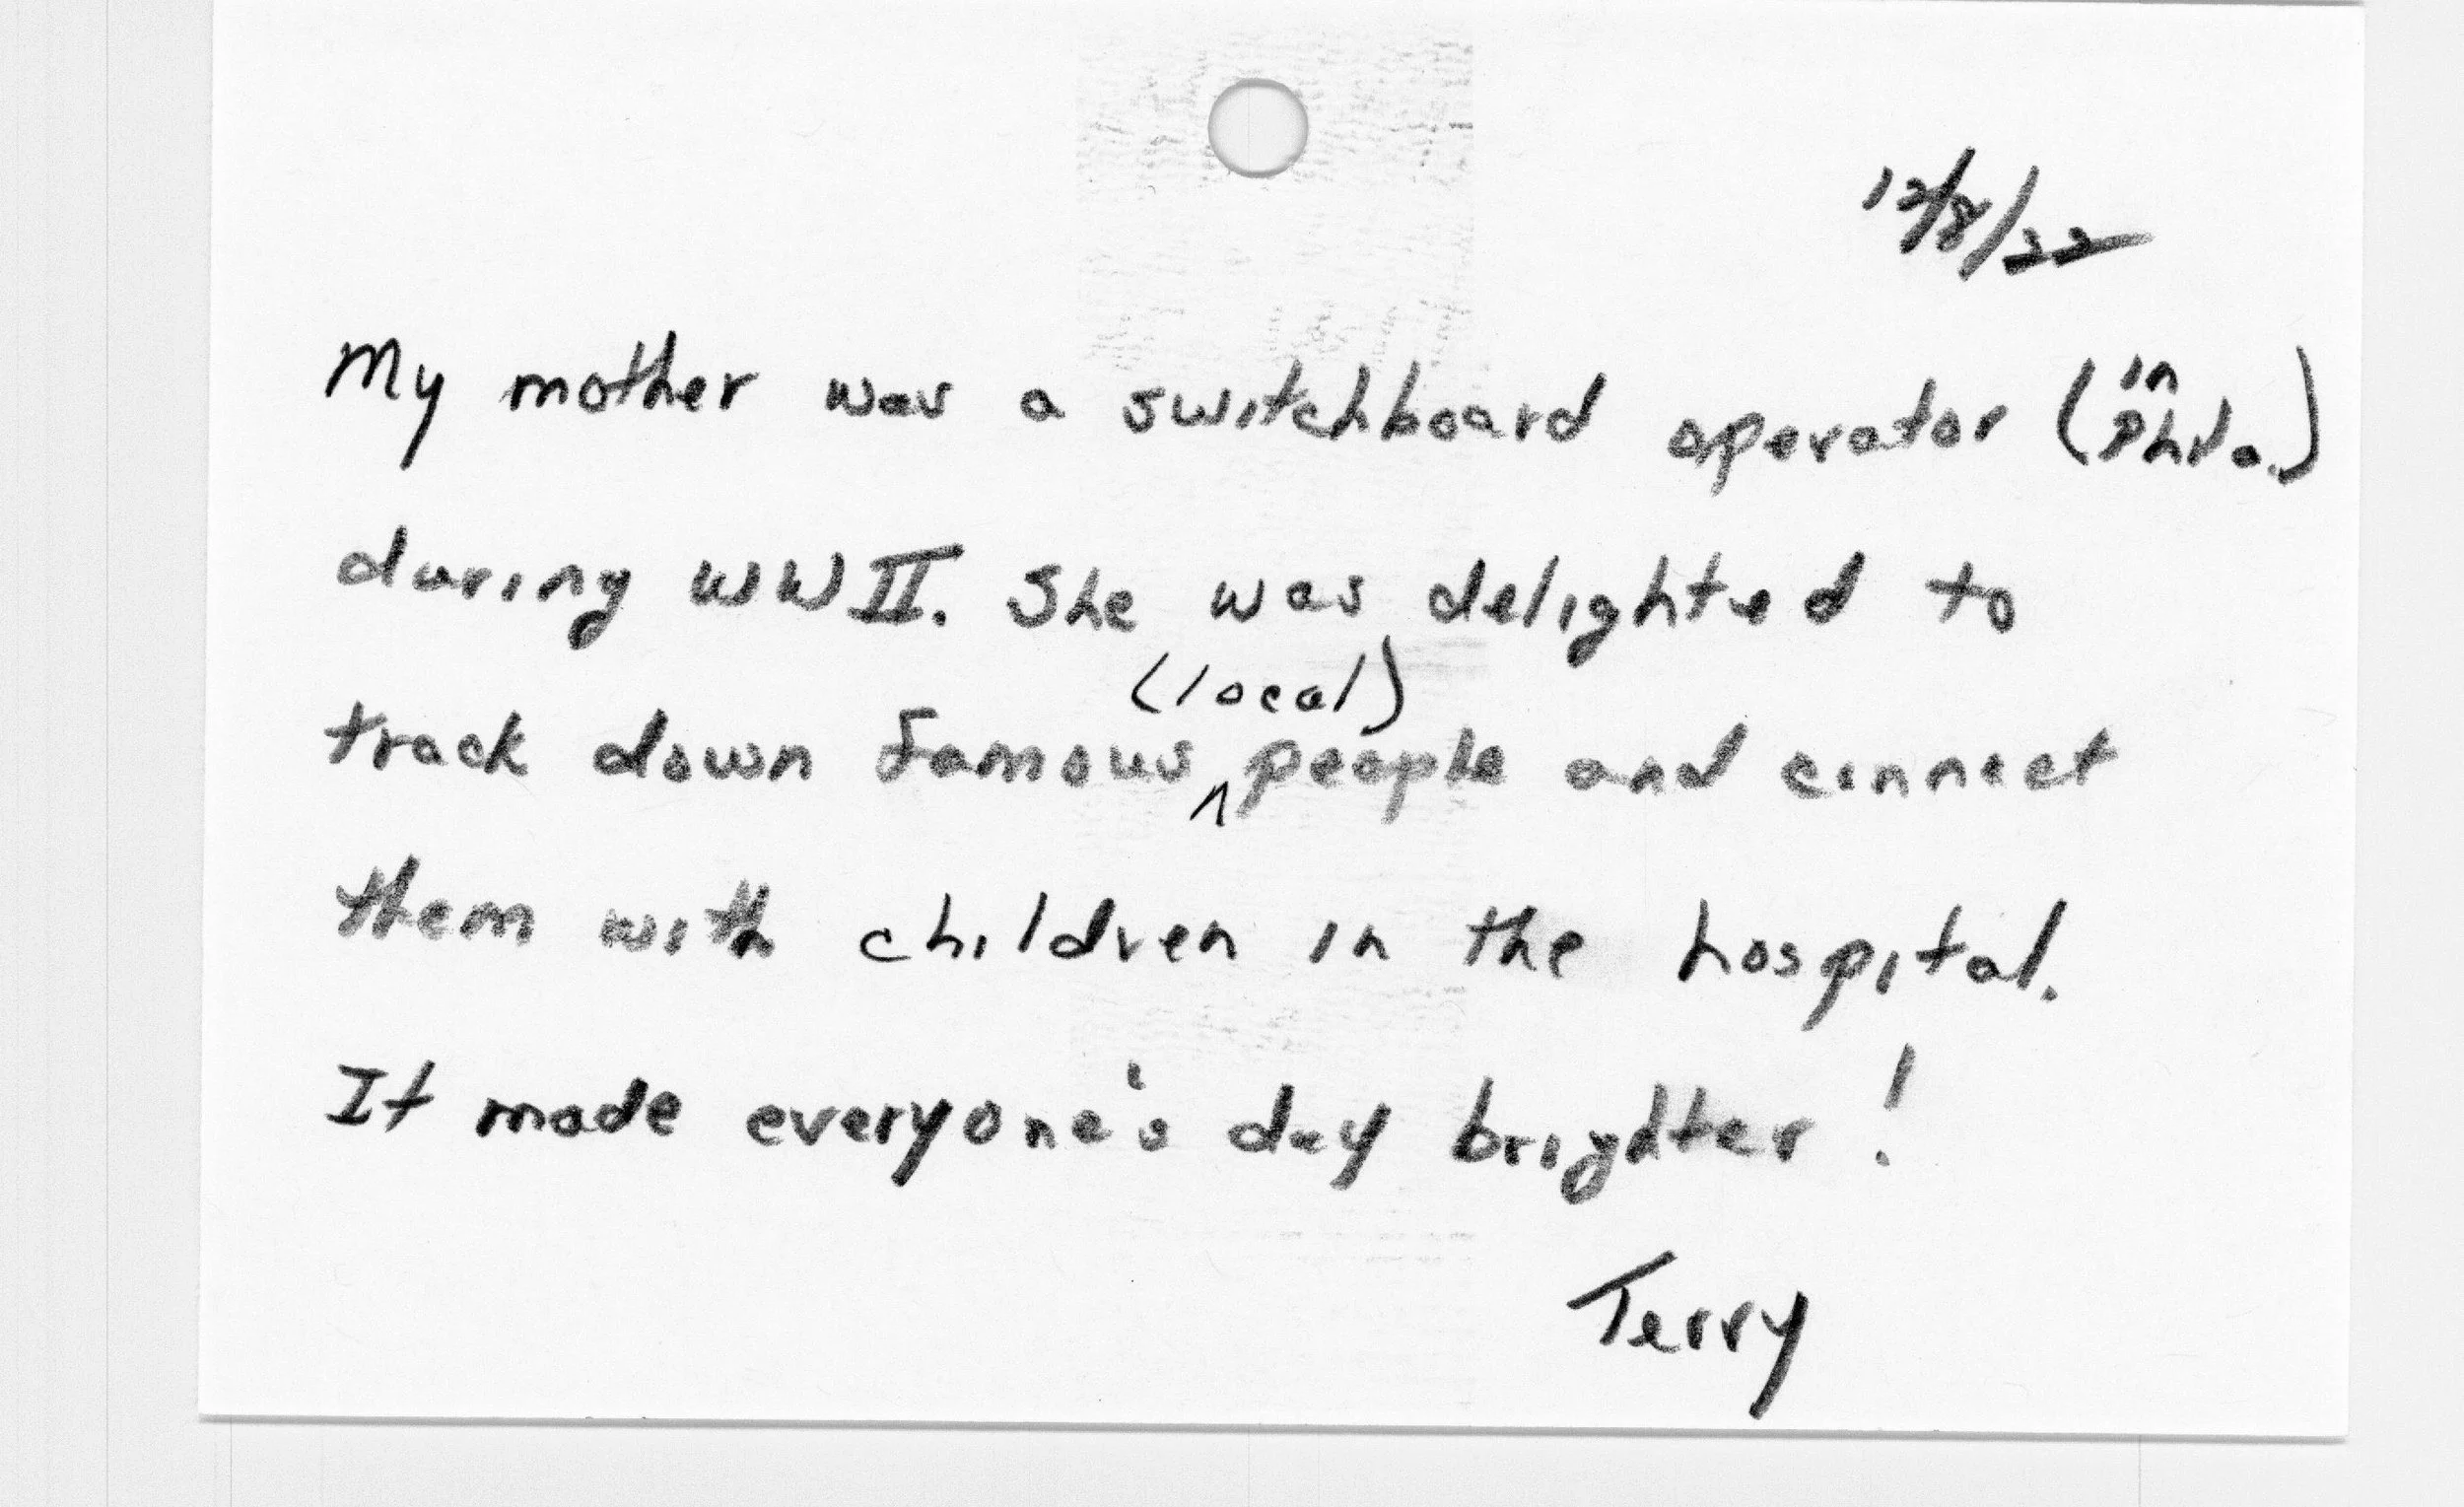 12/8/22
My mother was a switchboard operator (in Phila.)
during WWII. She was delighted to
track down famous ^ (local) people and connect
them with children in the hospital.
It made everyone's day brighter!
Terry